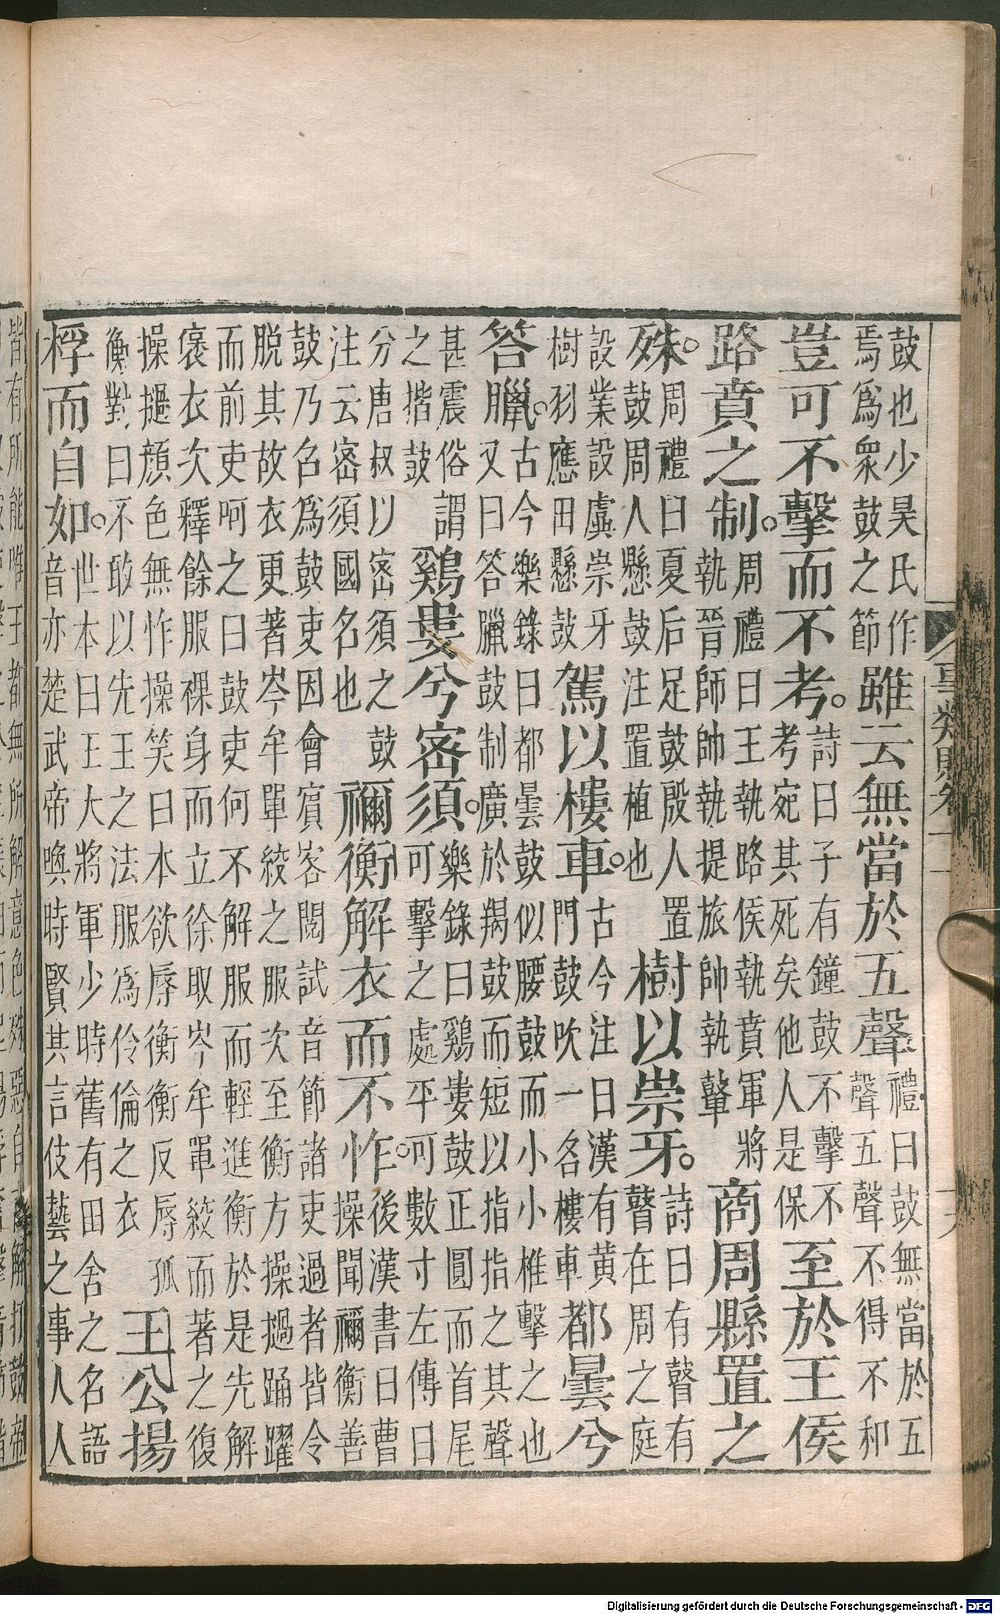 鼓也少昊氏作
焉爲衆鼓之節
雖云無當於五聲
禮曰鼓無當於五
聲五聲不得不和
豈可不擊而不考。
詩曰子有鐘鼓不擊不
考宛其死矣他人是保
至於王侯
路賁之制。
周禮曰王執路侯執賁軍將
執晉師帥執提旅帥執鼙
商周縣置之
殊。
周禮曰夏后足鼓殷人置
鼓周人懸鼓注置植也
樹以崇牙。
詩曰有瞽有
瞽在周之庭
設業設虡崇牙
樹羽應田懸鼓
駕以樓車。
古今注曰漢有黃
門鼓吹一名樓車
都曇兮
答臘。
古今樂錄曰都曇鼓似腰鼓而小小椎擊之也
又曰答臘鼓制廣於羯鼓而短以指指之其聲
甚震俗謂
之揩鼓
鷄婁兮密須。
樂錄曰鷄婁鼓正圓而首尾
可擊之處平可數寸左傳曰
分唐叔以密須之鼓
注云密須國名也
禰衡解衣而不怍。
後漢書曰曹
操聞禰衡善
鼓乃名爲鼓吏因會賓客閱試音節諸吏過者皆令
脫其故衣更著岑牟單絞之服次至衡方操撾踊躍
而前吏呵之曰鼓吏何不解服而輕進衡於是先解
褒衣次釋餘服裸身而立徐取岑牟單絞而著之復
操撾顏色無怍操笑曰本欲辱衡衡反辱孤
衡對曰不敢以先王之法服爲伶倫之衣
王公揚
桴而自如。
世本曰王大將軍少時舊有田舍之名語
音亦楚武帝喚時賢其言伎藝之事人人
事類賦卷十一
十六
Digitalisierung gefördert durch die Deutsche Forschungsgemeinschaft - DFG